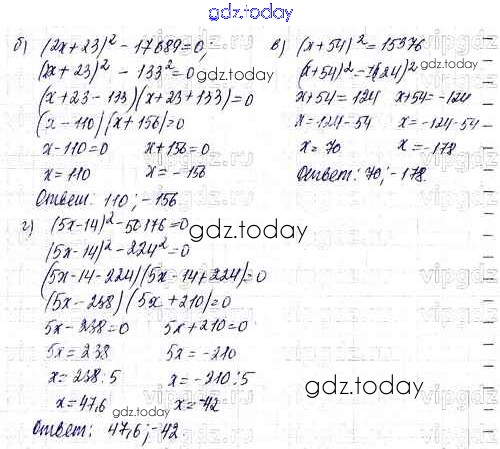 gdz.today
б) (2x+23)² - 17689=0;
(2x+23)² - 133²=0
(x+23-133)(x+23+133)=0
(x-110)(x+156)=0
x-110=0 x+156=0
x=110 x=-156
Ответ: 110; -156
в) (x+54)²=15376
(x+54)²=(124)²
x+54=124 x+54=-124
x=124-54 x=-124-54
x=70 x=-178
Ответ: 70; -178.
г) (5x-14)²-50176=0
(5x-14)²-224²=0
(5x-14-224)(5x-14+224)=0
(5x-238)(5x+210)=0
5x-238=0 5x+210=0
5x=238 5x=-210
x=238:5 x=-210:5
x=47,6 x=-42
Ответ: 47,6; -42.
gdz.today
gdz.today
gdz.today
gdz.today
gdz.today